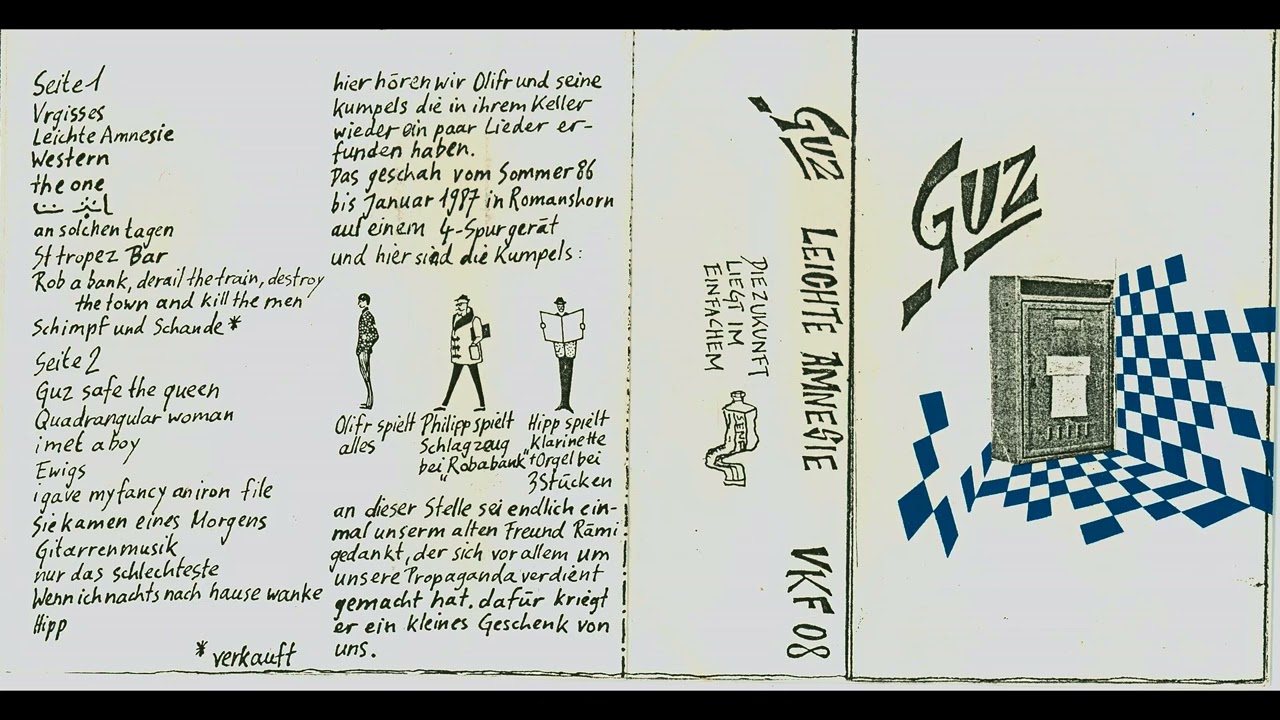 Seite 1
Vrgisses
Leichte Amnesie
Western
the one
an solchen tagen
St tropez Bar
Rob a bank, derail the train, destroy
the town and kill the men
Schimpf und Schande *
Seite 2
Guz safe the queen
Quadrangular woman
i met a boy
Ewigs
i gave my fancy an iron file
Sie kamen eines Morgens
Gitarrenmusik
nur das schlechteste
Wenn ich nachts nach hause wanke
Hipp
* verkauft
hier hören wir Olifr und seine
Kumpels die in ihrem Keller
wieder ein paar Lieder er-
funden haben.
Das geschah vom Sommer 86
bis Januar 1987 in Romanshorn
auf einem 4-Spurgerät
und hier sind die Kumpels:
Olifr spielt
alles
Philipp spielt
Schlagzeug
bei "Rob a bank"
Hipp spielt
Klarinette
+ Orgel bei
3 Stücken
an dieser Stelle sei endlich ein-
mal unserm alten Freund Rämi
gedankt, der sich vor allem um
unsere Propaganda verdient
gemacht hat. dafür kriegt
er ein kleines Geschenk von
uns.
DIE ZUKUNFT
LIEGT IM
EINFACHEM
GUZ LEICHTE AMNESIE VKF 08
GUZ